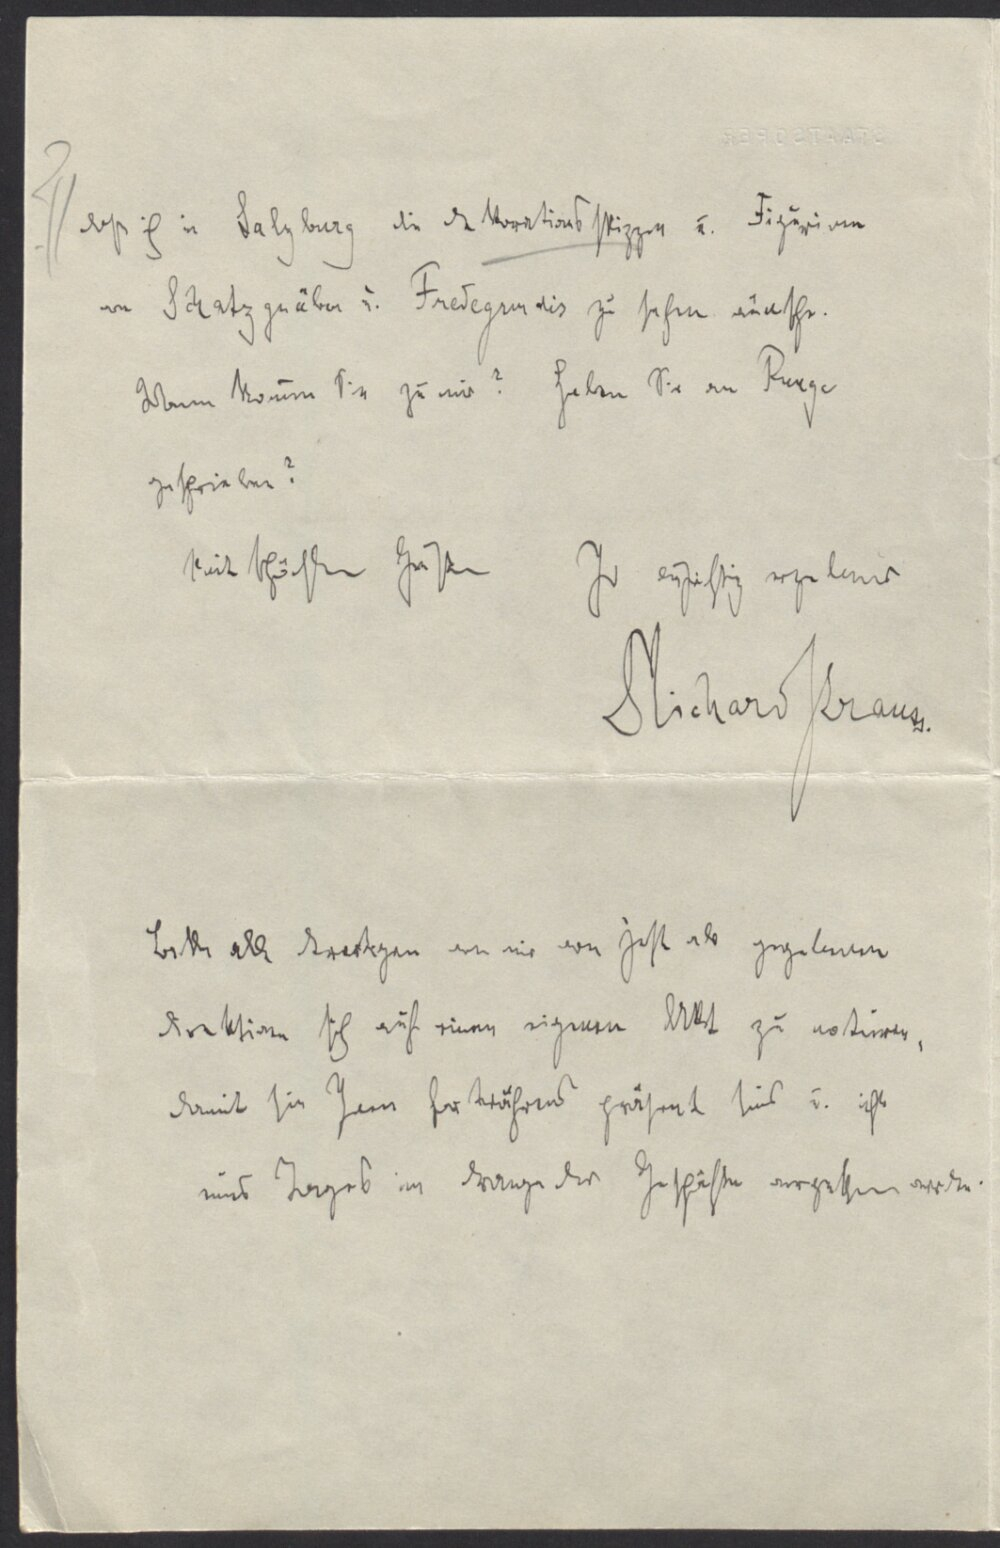 daß ich in Salzburg die Dekorationsskizzen u. Figurinen
von Schatzgräber u. Fredegundis zu sehen wünsche.
Wann kommen Sie zu mir? Haben Sie an
geschrieben?
Mit schönsten Grüßen Ihr aufrichtig ergebener
Richard Strauss.
Bitte alle von mir von jetzt ab gegebenen
Direktiven sich auf einen eigenen Akt zu notieren,
damit sie Ihnen fortwährend präsent sind u. nicht
eines Tages im Drange der Geschäfte vergessen werden.
STAATSOPER